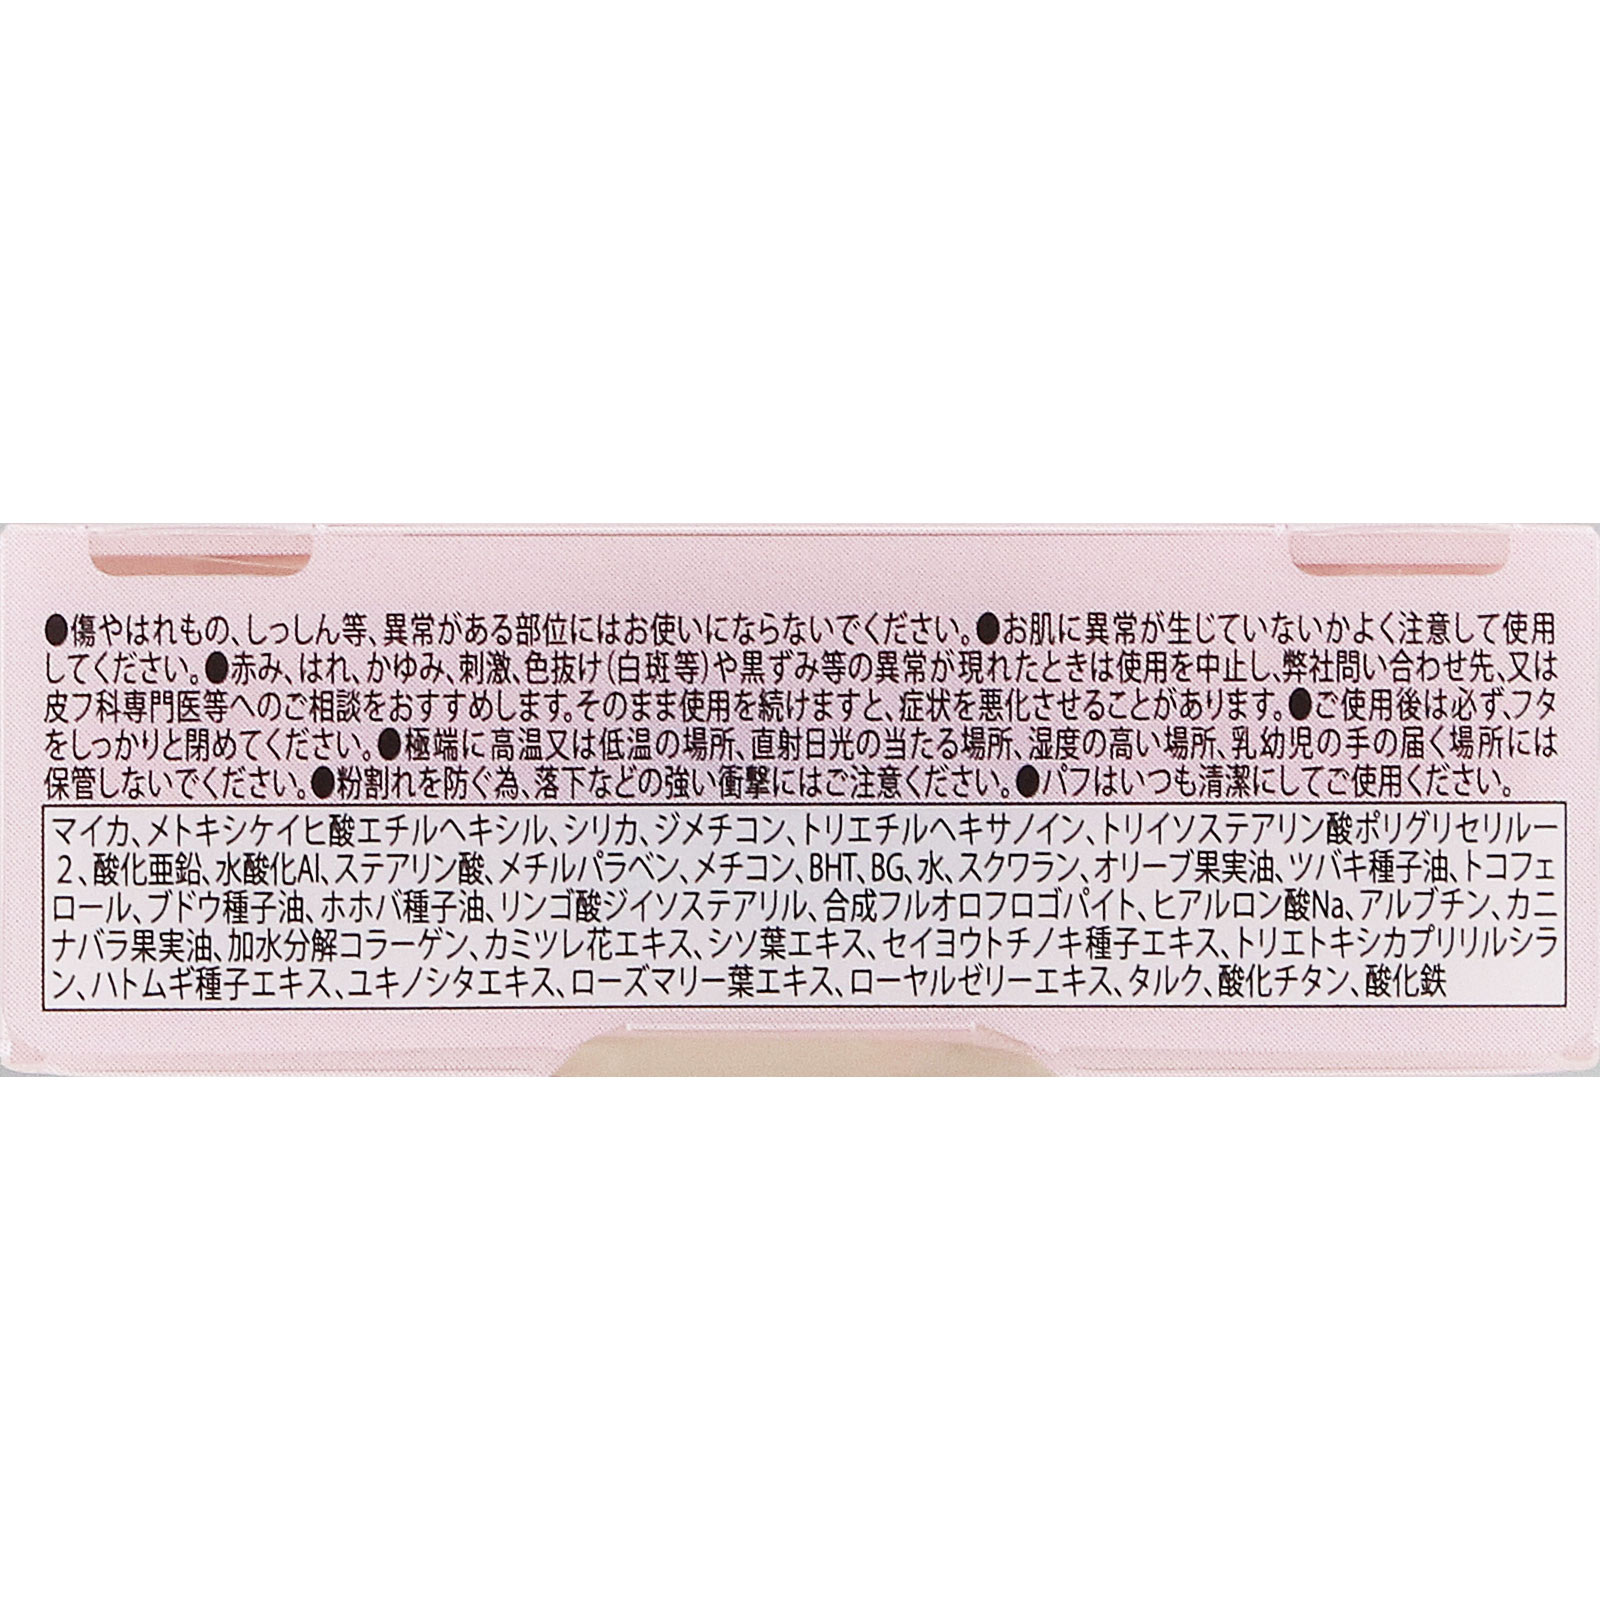 ●傷やはれもの、しっしん等、異常がある部位にはお使いにならないでください。●お肌に異常が生じていないかよく注意して使用
してください。●赤み、はれ、かゆみ、刺激、色抜け(白斑等)や黒ずみ等の異常が現れたときは使用を中止し、弊社問い合わせ先、又は
皮フ科専門医等へのご相談をおすすめします。そのまま使用を続けますと、症状を悪化させることがあります。●ご使用後は必ず、フタ
をしっかりと閉めてください。●極端に高温又は低温の場所、直射日光の当たる場所、湿度の高い場所、乳幼児の手の届く場所には
保管しないでください。●粉割れを防ぐ為、落下などの強い衝撃にはご注意ください。●パフはいつも清潔にしてご使用ください。
マイカ、メトキシケイヒ酸エチルヘキシル、シリカ、ジメチコン、トリエチルヘキサノイン、トリイソステアリン酸ポリグリセリルー
2、酸化亜鉛、水酸化Al、ステアリン酸、メチルパラベン、メチコン、BHT、BG、水、スクワラン、オリーブ果実油、ツバキ種子油、トコフェ
ロール、ブドウ種子油、ホホバ種子油、リンゴ酸ジイソステアリル、合成フルオロフロゴパイト、ヒアルロン酸Na、アルブチン、カニ
ナバラ果実油、加水分解コラーゲン、カミツレ花エキス、シソ葉エキス、セイヨウトチノキ種子エキス、トリエトキシカプリリルシラ
ン、ハトムギ種子エキス、ユキノシタエキス、ローズマリー葉エキス、ローヤルゼリーエキス、タルク、酸化チタン、酸化鉄